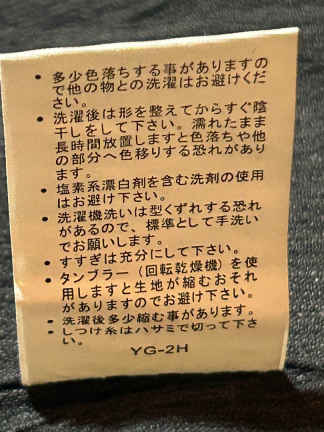 • 多少色落ちする事がありますの
で他の物との洗濯はお避けくだ
さい。
• 洗濯後は形を整えてからすぐ陰
干しをして下さい。濡れたまま
長時間放置しますと色落ちや他
の部分へ色移りする恐れがあり
ます。
• 塩素系漂白剤を含む洗剤の使用
はお避け下さい。
• 洗濯機洗いは型くずれする恐れ
があるので、標準として手洗い
でお願いします。
• すすぎは充分にして下さい。
• タンブラー（回転乾燥機）を使
用しますと生地が縮むおそれ
がありますのでお避け下さい。
• 洗濯後多少縮む事があります。
• しつけ糸はハサミで切って下さ
い。
YG-2H